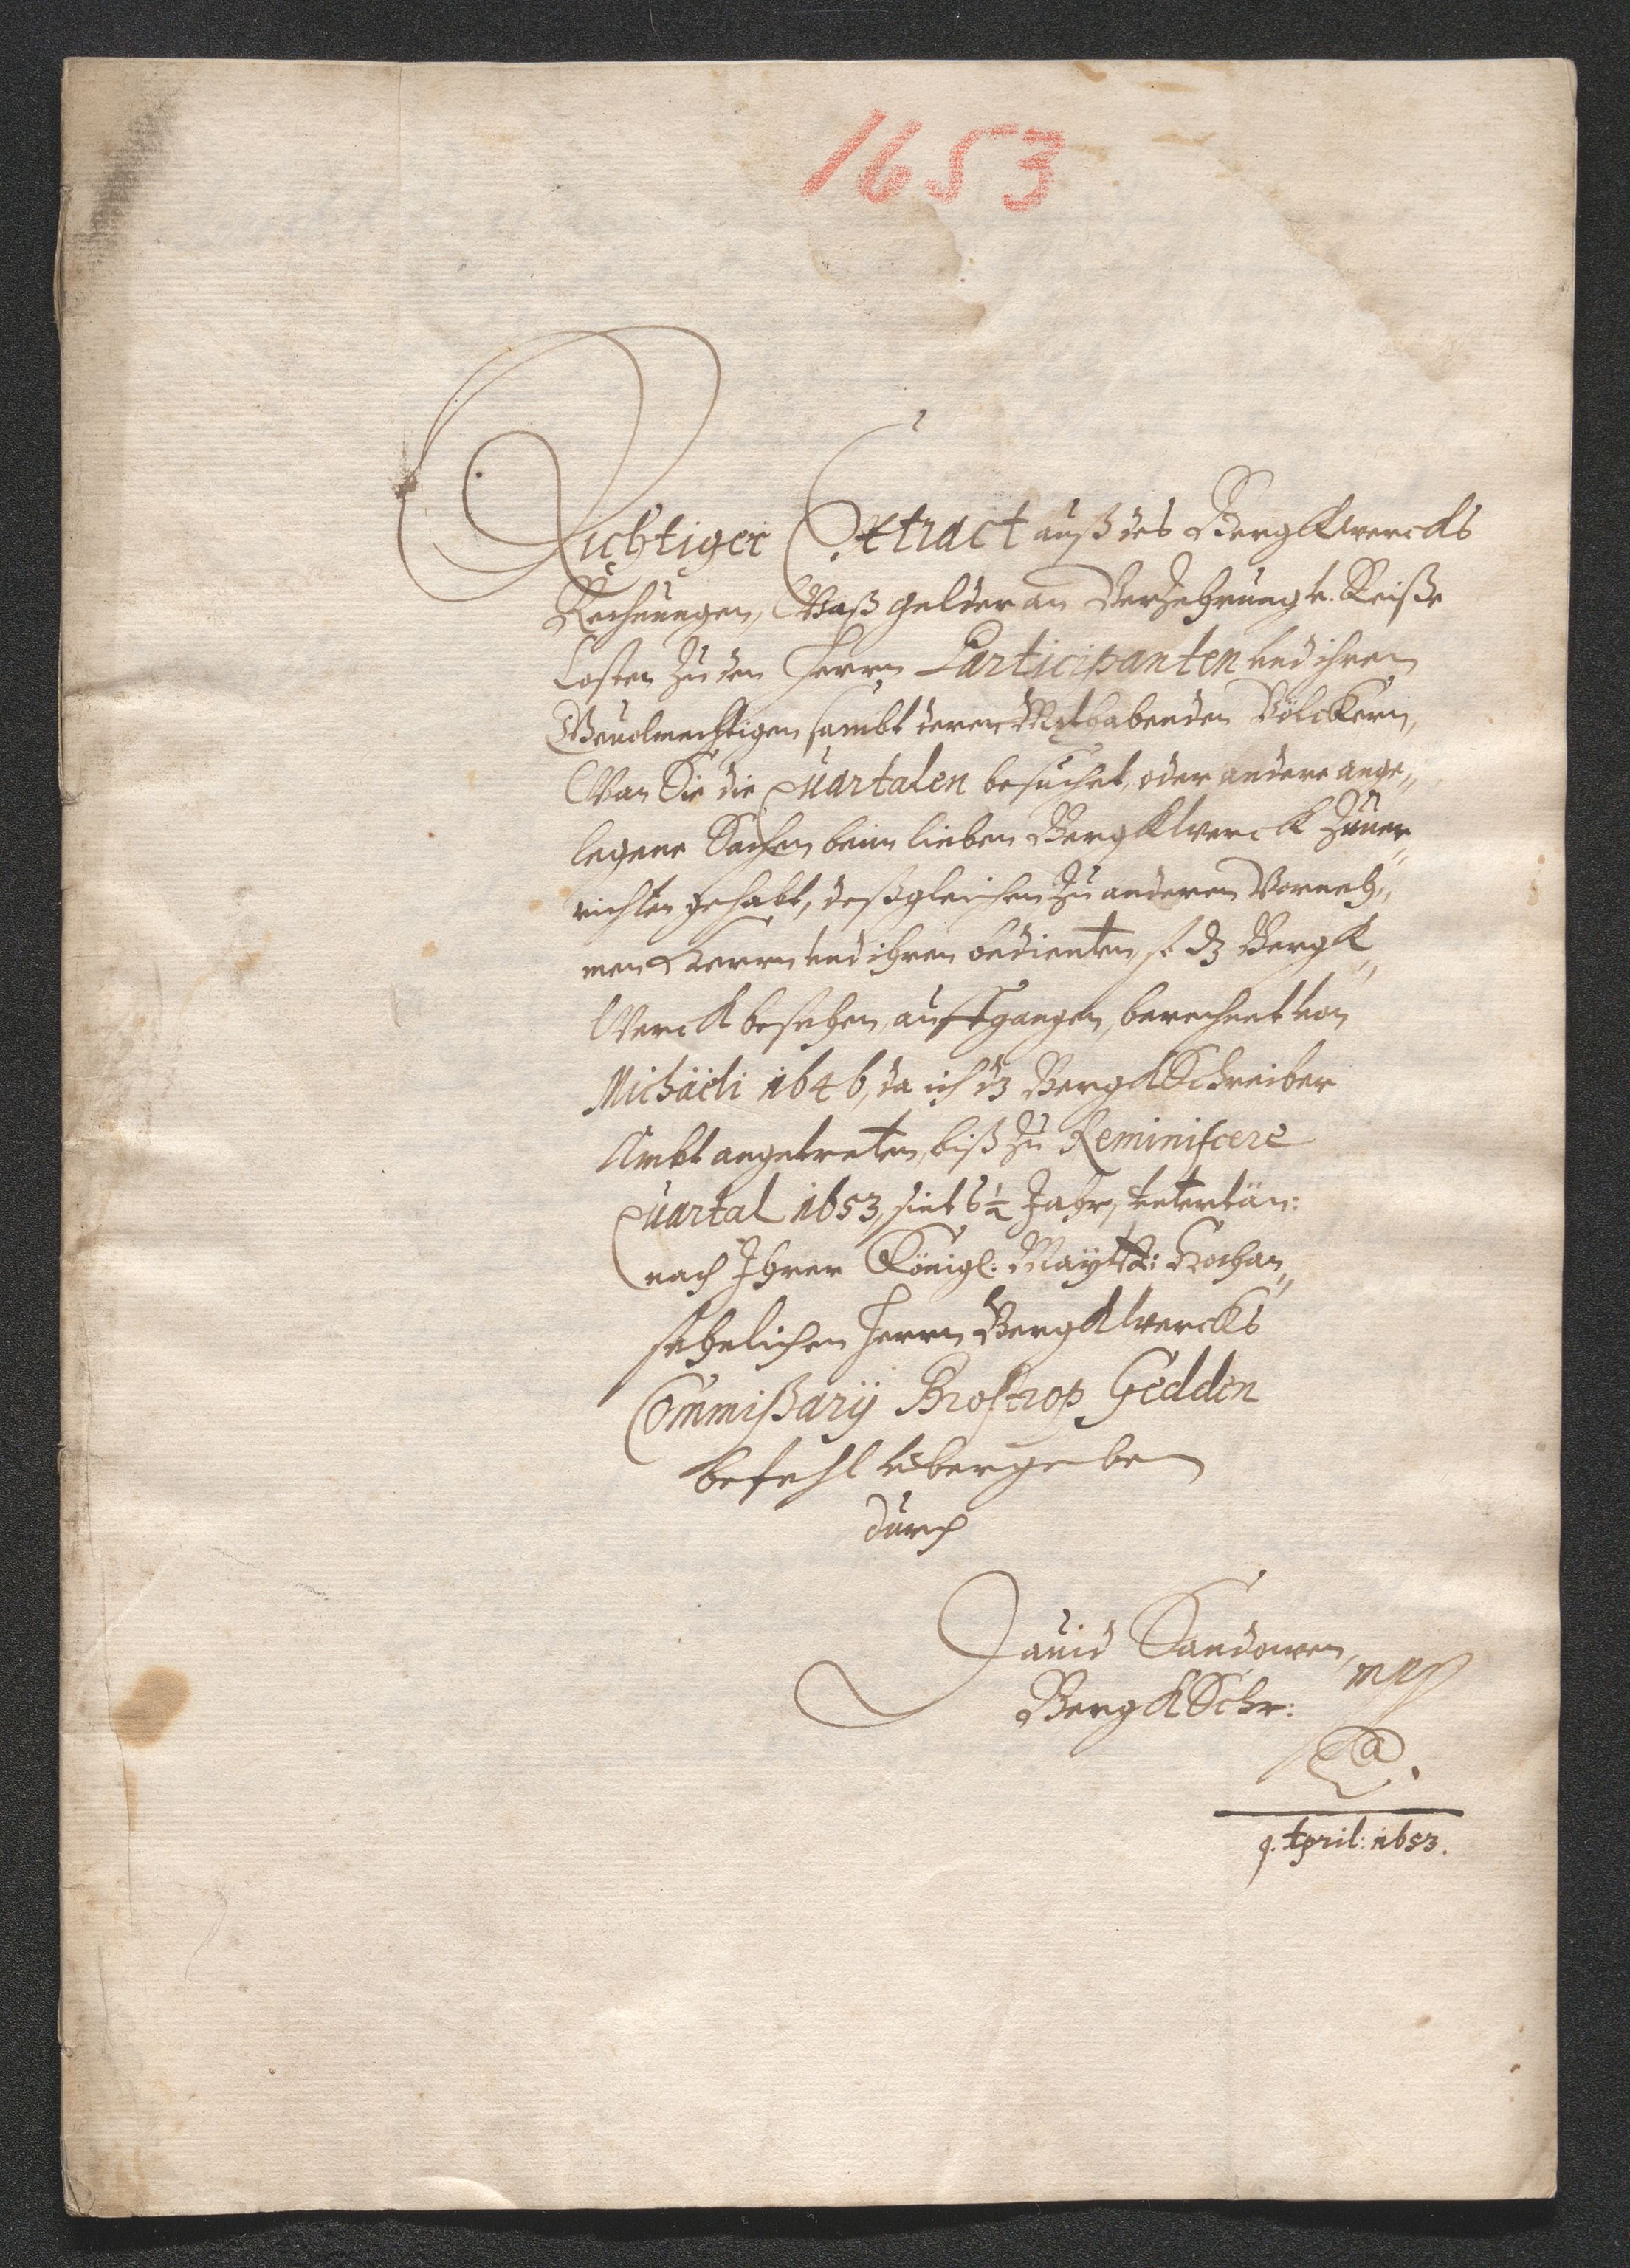 1653
Richtiger Extract auß des Bergkwercks
Rechnungen, Waß gelder an Verzehrung u. Reiße
Costen zu den Herrn Participanten und ihren
Gevolmechtigen sambt deren Mithabenden Völckern,
Wan Sie die Quartalen besuchet, oder andere ange„
legene Sachen beim lieben Bergkwerck Zuver„
richten gehabt, deßgleichen Zu anderen Vorneh„
men Herrn und ihren bedienten, so dz Bergk„
Werck besehen, aufgangen, berechnet von
Michäeli 1646, da ich dz BergkSchreiber
Ambt angetreten, biß zu Reminiscere
Quartal 1653, sint 6½ Jahr, untertän:
nach Ihrer Königl. Maytt: Hochan„
sehelichen Herrn Bergkwercks
Commißarij Brostrop Gedden
befehl übergeben
durch
David Sandowen,
BergkSchr: mpp
9. April: 1653.